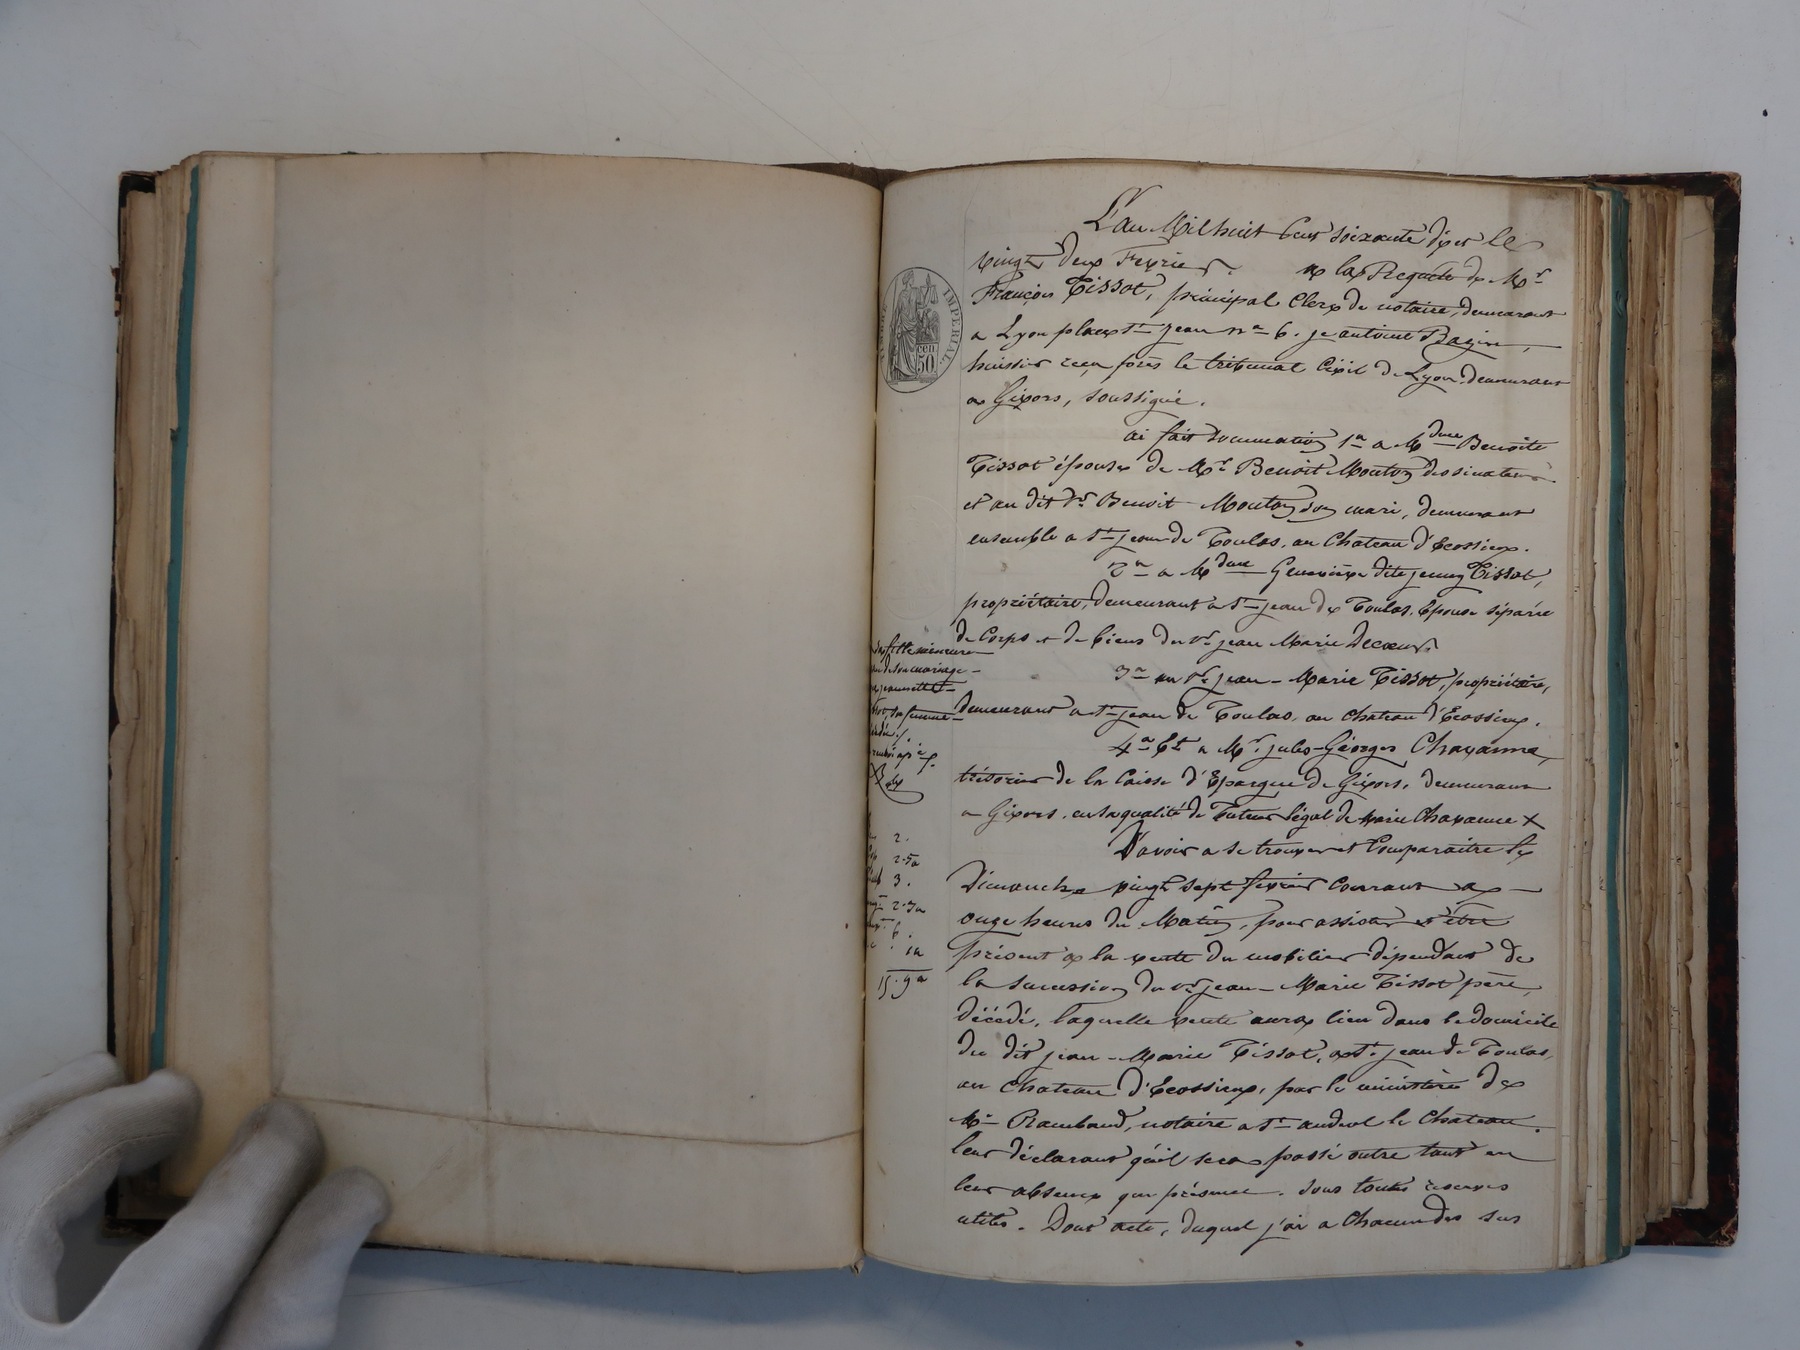 L'an Mil huit Cent soixante dix et le
vingt deux Fevrier. a la Requete de Mr
François Tissot, principal Clerc de notaire, demeurant
a Lyon place St Jean no 6. je antoine Bazin,
huissier reçu près le tribunal Civil de Lyon, demeurant
a Givors, soussigné.
ai fait sommation 1o a Mdme Benoite
Tissot épouse de Mr Benoit Mouton dessinateur
et au dit Sr Benoit Mouton son mari, demeurant
ensemble a St jean de Toulas, au Chateau d'Ecossieux.
2o a Mdme Genevieve dite jenny Tissot,
propriétaire, demeurant a St jean de Toulas, Epouse séparée
de Corps et de biens du Sr jean Marie Decoeur.
3o au Sr jean-Marie Tissot, propriétaire,
demeurant a St jean de Toulas, au Chateau d'Ecossieux.
4o Et a Mr. jules-Géorges Chavanne,
trésorier de la Caisse d'Epargne de Givors, demeurant
a Givors, en sa qualité de Tuteur légal de Marie Chavanne X
D'avoir a se trouver et Comparaitre le
Dimanche vingt sept fevrier Courant a
onze heures du Matin, pour assister et être
présent a la vente du mobilier dépendant de
la succession du Sr jean-Marie Tissot père,
décédé, laquelle vente aura lieu dans le domicile
du dit jean-Marie Tissot, a St. jean de Toulas,
au Chateau d'Ecossieux, par le ministère de
Me Rambaud, notaire a St andeol le Chateau.
leur déclarant qu'il sera passé outre tant en
leur absence que présence. Sous toutes reserves
utiles. Dont acte, duquel j'ai a Chacun des sus
sa fille mineure
de son mariage
jeannette
sa femme
décédée /.
IMPERIAL
50 cen
2.
2.50
3.
2.30
6.
10
15.90